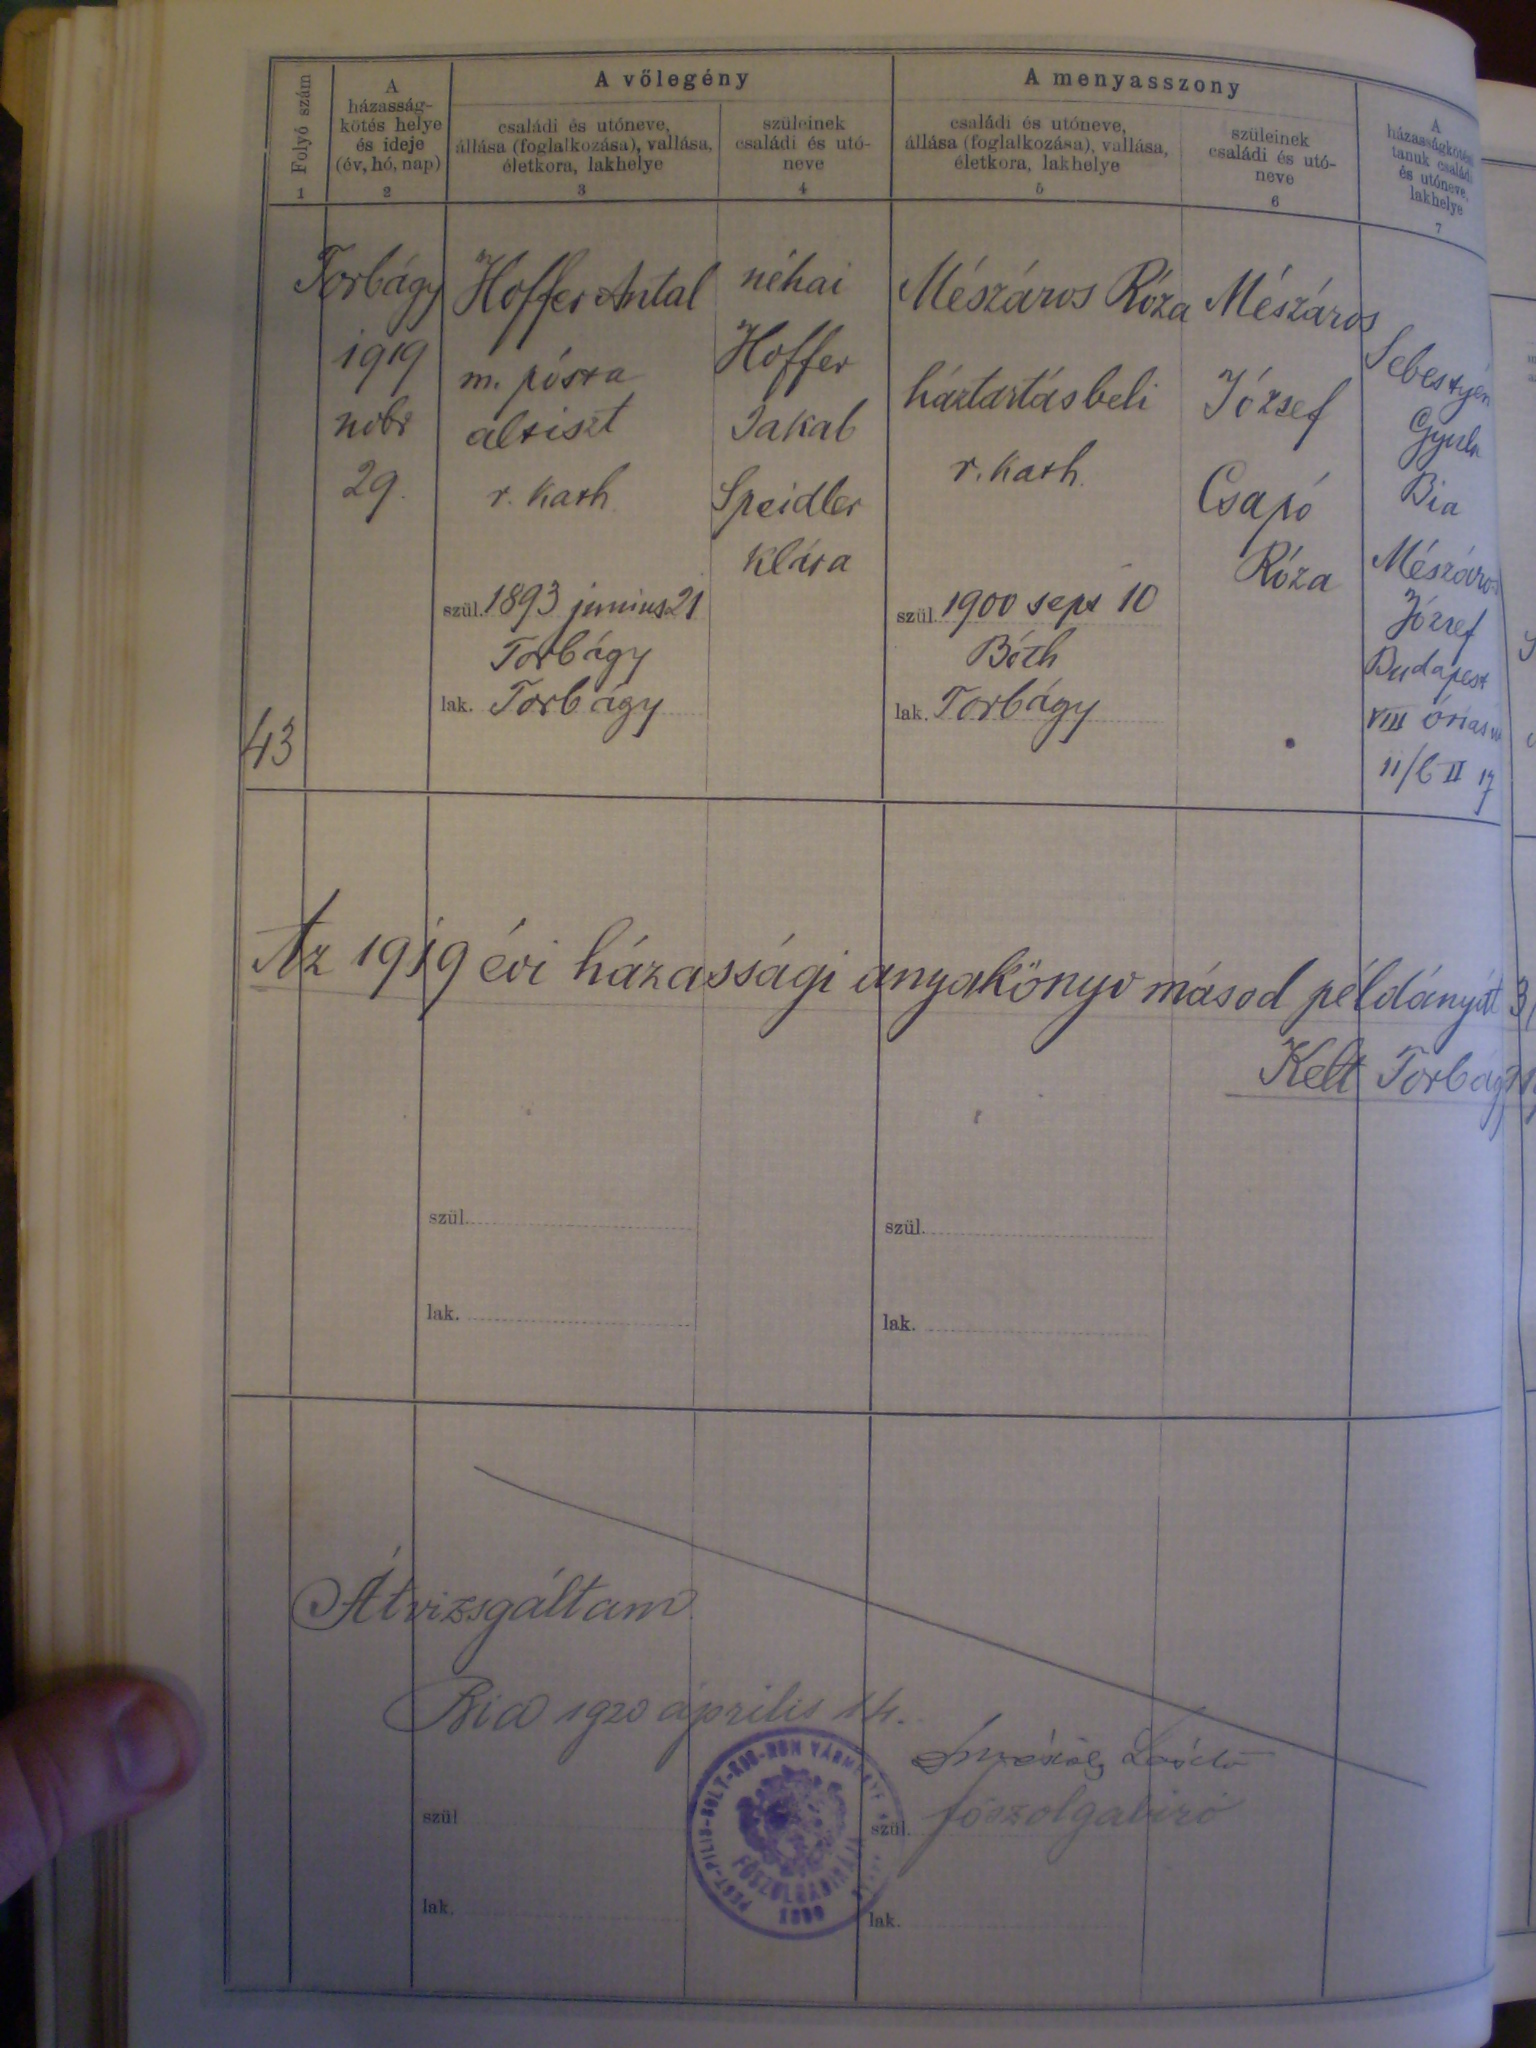 A vőlegény
A menyasszony
Folyó szám
1
A
házasság-
kötés helye
és ideje
(év, hó, nap)
2
családi és utóneve,
állása (foglalkozása), vallása,
életkora, lakhelye
3
szüleinek
családi és utó-
neve
4
családi és utóneve,
állása (foglalkozása), vallása,
életkora, lakhelye
5
szüleinek
családi és utó-
neve
6
A
házasságkötési
tanuk családi
és utóneve,
lakhelye
7
43
Torbágy
1919
nobr
29.
Hoffer Antal
m. pósta
altiszt
r. kath.
szül. 1893 junius 21
Torbágy
lak. Torbágy
néhai
Hoffer
Jakab
Speidler
Klára
Mészáros Róza
háztartásbeli
r. kath.
szül. 1900 sept 10
Bóth
lak. Torbágy
Mészáros
József
Csapó
Róza
Sebestyén
Gyula
Bia
Mészáros
József
Budapest
VIII óriás
11/b II 17
Az 1919 évi házassági anyakönyv másod példányát 31
Kelt Torbágy
szül.
szül.
lak.
lak.
Átvizsgáltam
Bia 1920 április 14.
László
főszolgabíró
PEST-PILIS-SOLT-KIS-KUN VÁRMEGYE
FŐSZOLGABIRÁJA
szül
szül.
lak.
lak.